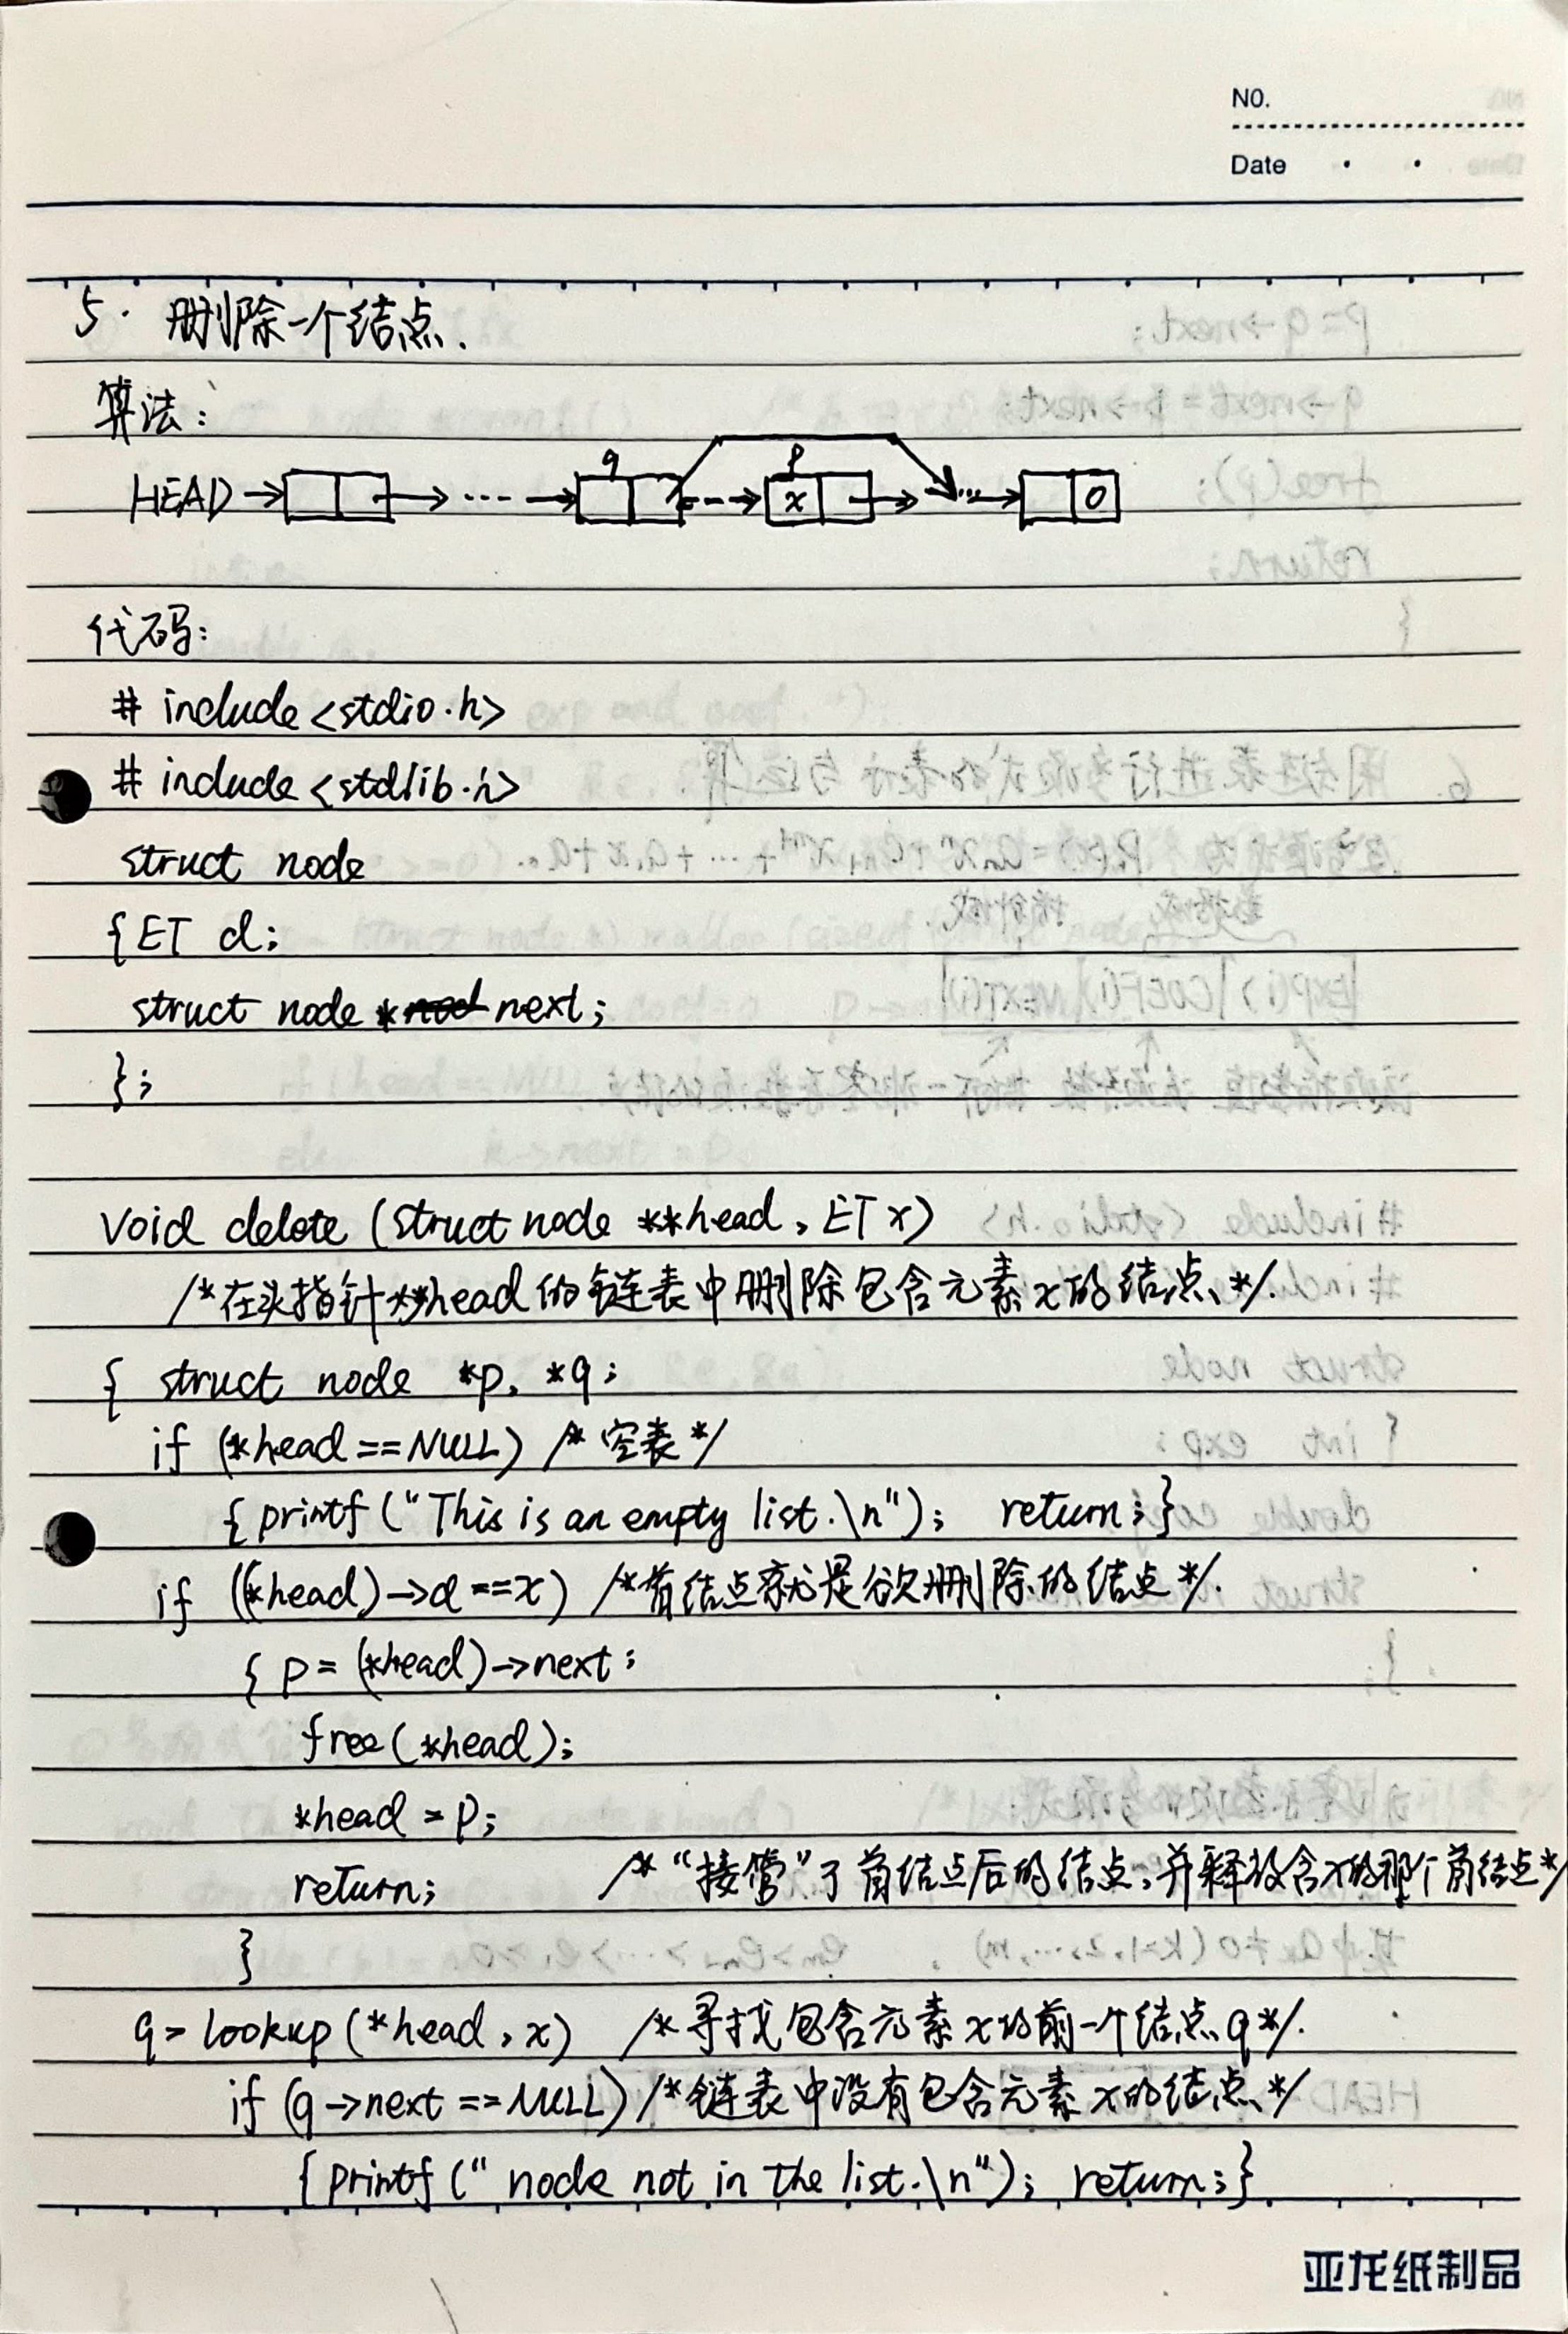 NO.
Date
5. 删除一个结点.
算法:
q p
HEAD → → ... → x → ... → 0
代码:
# include <stdio.h>
# include <stdlib.h>
struct node
{ET d;
struct node * next;
};
void delete (struct node **head, ET x)
/*在头指针**head的链表中删除包含元素x的结点*/.
{ struct node *p, *q;
if (*head==NULL) /*空表*/
{printf("This is an empty list.\n"); return;}
if ((*head)->d==x) /*首结点就是欲删除的结点*/.
{ p=(*head)->next;
free(*head);
*head=p;
return; /*“接管”了首结点后的结点,并释放含x的那个首结点*/
}
q=lookup(*head,x) /*寻找包含元素x的前一个结点q*/.
if (q->next==NULL) /*链表中没有包含元素x的结点*/
{printf("node not in the list.\n"); return;}
亚龙纸制品